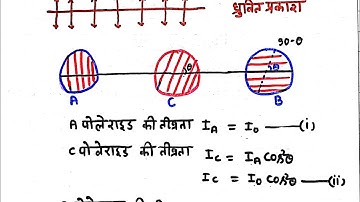 ध्रुवित प्रकाश
90-θ
θ
θ
A
C
B
A पोलेराइड की तीव्रता I_A = I_0 —(i)
C पोलेराइड की तीव्रता I_C = I_A cos²θ
I_C = I_0 cos²θ —(ii)